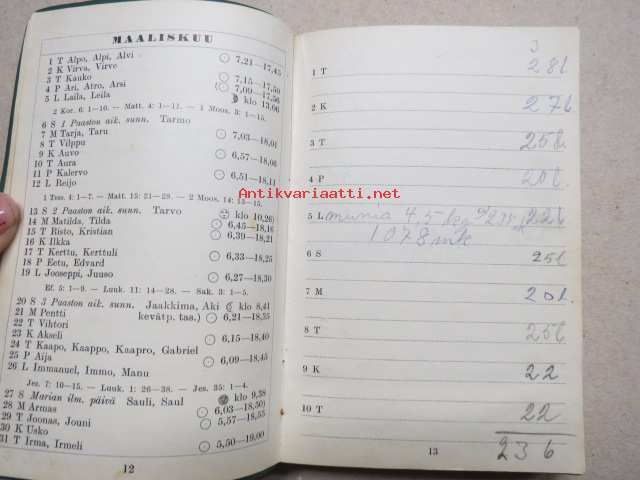 MAALISKUU
1 T Alpo, Alpi, Alvi 7,21—17,45
2 K Virva, Virve
3 T Kauko 7,15—17,50
4 P Ari, Atro, Arsi 7,09—17,56
5 L Laila, Leila klo 13,06
2 Kor. 6: 1—10. – Matt. 4: 1—11. – 1 Moos. 3: 1—15.
6 S 1 Paaston aik. sunn. Tarmo
7 M Tarja, Taru 7,03—18,01
8 T Vilppu
9 K Auvo 6,57—18,06
10 T Aura
11 P Kalervo 6,51—18,11
12 L Reijo
1 Tess. 4: 1—7. – Matt. 15: 21—28. – 2 Moos. 14: 13—15.
13 S 2 Paaston aik. sunn. Tarvo klo 10,26)
14 M Matilda, Tilda 6,45—18,16
15 T Risto, Kristian 6,39—18,21
16 K Ilkka
17 T Kerttu, Kerttuli 6,33—18,25
18 P Eetu, Edvard
19 L Jooseppi, Juuso 6,27—18,30
Ef. 5: 1—9. – Luuk. 11: 14—28. – Sak. 3: 1—5.
20 S 3 Paaston aik. sunn. Jaakkima, Aki klo 8,41
21 M Pentti kevätp. tas.) 6,21—18,35
22 T Vihtori
23 K Akseli 6,15—18,40
24 T Kaapo, Kaappo, Kaapro, Gabriel
25 P Aija 6,09—18,45
26 L Immanuel, Immo, Manu
Jes. 7: 10—15. – Luuk. 1: 26—38. – Jes. 35: 1—4.
27 S Marian ilm. päivä Sauli, Saul klo 9,38
28 M Armas 6,03—18,50)
29 T Joonas, Jouni 5,57—18,55
30 K Usko
31 T Irma, Irmeli 5,50—19,00
12
Antikvariaatti.net
3
1 T 28 l
2 K 27 l
3 T 25 l
4 P 20 l
5 L munia 4,5 kg 22 l
1078 mk
6 S 25 l
7 M 20 l
8 T 25 l
9 K 22
10 T 22
236
13